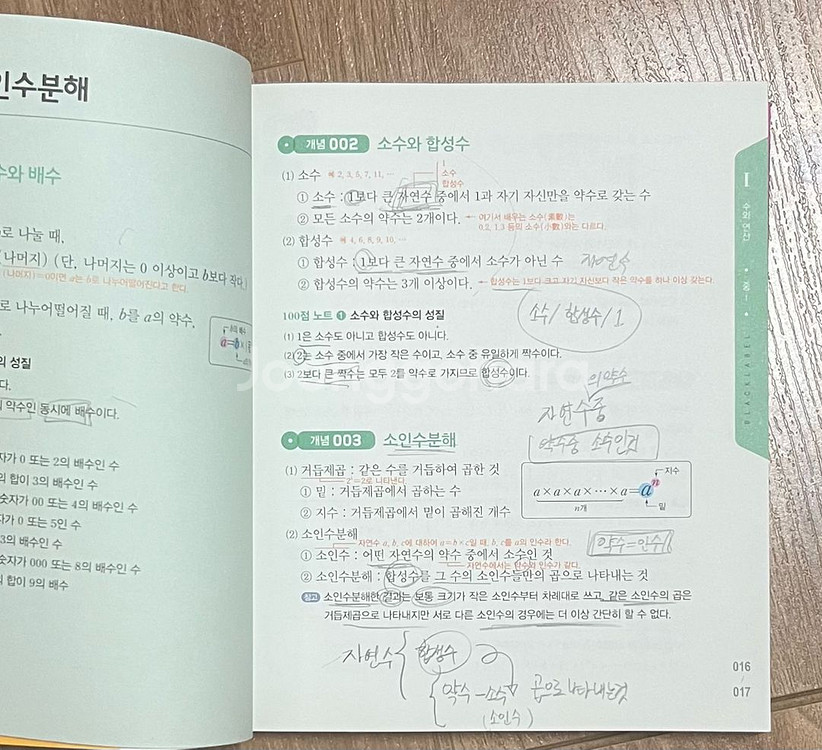 인수분해
수와 배수
로 나눌 때,
(나머지) (단, 나머지는 0 이상이고 b보다 작다.)
(나머지)=0이면 a는 b로 나누어떨어진다고 한다.
로 나누어떨어질 때, b를 a의 약수,
의 성질
다.
약수인 동시에 배수이다.
자가 0 또는 2의 배수인 수
의 합이 3의 배수인 수
숫자가 00 또는 4의 배수인 수
자가 0 또는 5인 수
3의 배수인 수
숫자가 000 또는 8의 배수인 수
의 합이 9의 배수
개념 002 소수와 합성수
(1) 소수 예 2, 3, 5, 7, 11, …
1
소수
합성수
① 소수 : 1보다 큰 자연수 중에서 1과 자기 자신만을 약수로 갖는 수
② 모든 소수의 약수는 2개이다. ← 여기서 배우는 소수(素數)는
0.2, 1.3 등의 소수(小數)와는 다르다.
(2) 합성수 예 4, 6, 8, 9, 10, …
① 합성수 : 1보다 큰 자연수 중에서 소수가 아닌 수 자연수
② 합성수의 약수는 3개 이상이다. ← 합성수는 1보다 크고 자기 자신보다 작은 약수를 하나 이상 갖는다.
100점 노트 1 소수와 합성수의 성질
소수/합성수/1
(1) 1은 소수도 아니고 합성수도 아니다.
(2) 2는 소수 중에서 가장 작은 수이고, 소수 중 유일하게 짝수이다.
(3) 2보다 큰 짝수는 모두 2를 약수로 가지므로 합성수이다.
Joonggonara
의 약수
자연수 중
약수중 소수인것
개념 003 소인수분해
(1) 거듭제곱 : 같은 수를 거듭하여 곱한 것
① 밑 : 거듭제곱에서 곱하는 수
② 지수 : 거듭제곱에서 밑이 곱해진 개수
지수
a×a×a×…×a=aⁿ
n개
밑
(2) 소인수분해
자연수 a, b, c에 대하여 a=b×c일 때, b, c를 a의 인수라 한다.
약수=인수
① 소인수 : 어떤 자연수의 약수 중에서 소수인 것
자연수에서는 약수와 인수가 같다.
② 소인수분해 : 합성수를 그 수의 소인수들만의 곱으로 나타내는 것
참고 소인수분해한 결과는 보통 크기가 작은 소인수부터 차례대로 쓰고, 같은 소인수의 곱은
거듭제곱으로 나타내지만 서로 다른 소인수의 경우에는 더 이상 간단히 할 수 없다.
자연수 합성수
약수-소수 곱으로 나타내는것
(소인수)
I
수와 연산
중 1
016
017